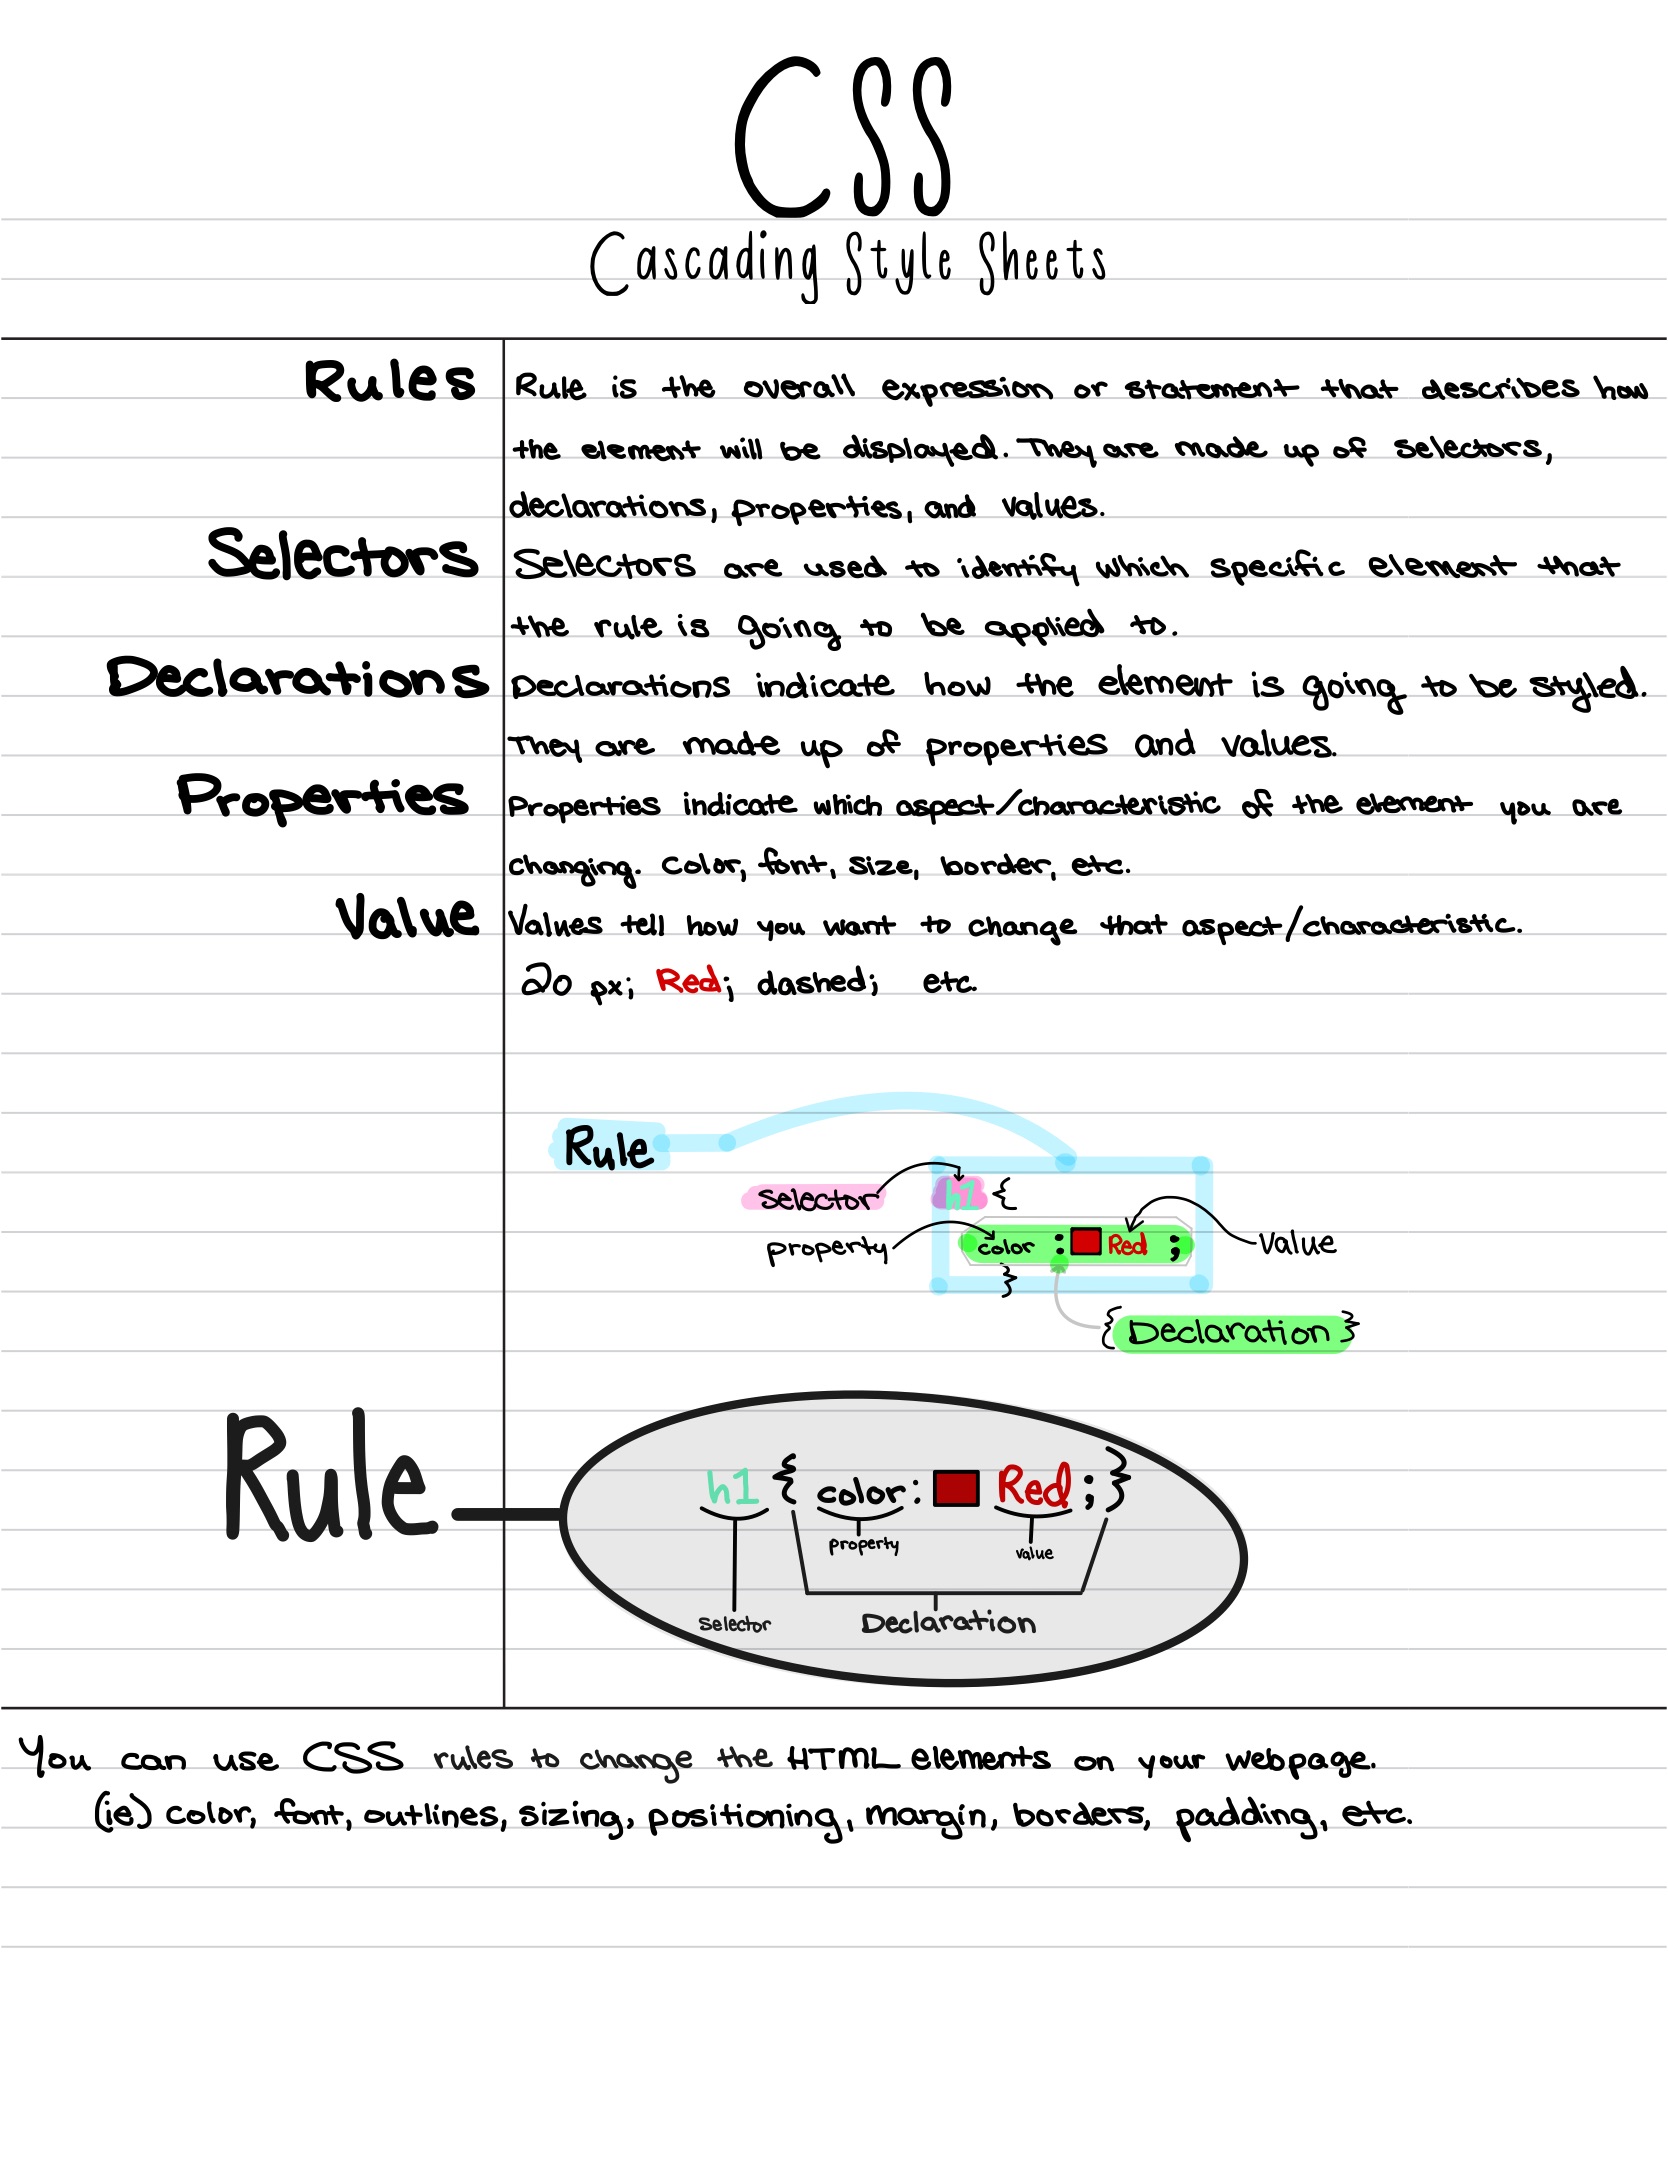 CSS
Cascading Style Sheets
Rules
Rule is the overall expression or statement that describes how
the element will be displayed. They are made up of selectors,
declarations, properties, and values.
Selectors
Selectors are used to identify which specific element that
the rule is going to be applied to.
Declarations
Declarations indicate how the element is going to be styled.
They are made up of properties and values.
Properties
Properties indicate which aspect/characteristic of the element you are
changing. Color, font, size, border, etc.
Value
Values tell how you want to change that aspect/characteristic.
20 px; Red; dashed; etc.
Rule
Selector h1 {
property color : Red ; Value
}
{ Declaration }
Rule
h1 { color: Red ; }
property value
Selector Declaration
You can use CSS rules to change the HTML elements on your webpage.
(ie) color, font, outlines, sizing, positioning, margin, borders, padding, etc.